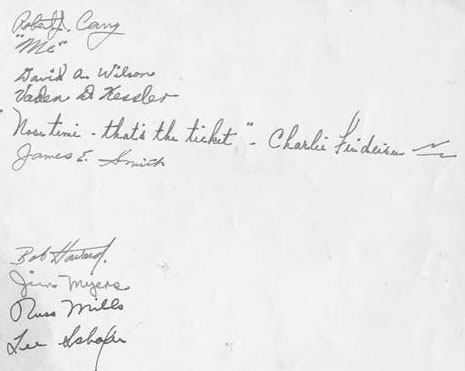 Robert J. Cary
"Mc"
David A. Wilson
Vaden D Kessler
"Nosotimi - that's the ticket" - Charlie Findeisen
James E. Smith
Bob Howard.
Jim Myers
Russ Mills
Lee Schafer